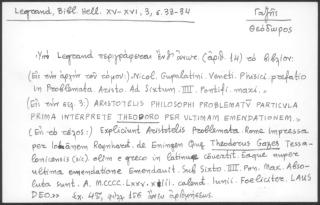 Legrand, Bibl. Hell. XV-XVI, 3, σ. 33-34
Γαζῆς
Θεόδωρος
Ὑπὸ Legrand περιγράφεται (ἀριθ. 14) τὸ βιβλίον:
(Εἰς τὴν ἀρχὴν τοῦ τόμου). Nicol. Gupalatini. Veneti. Phisici. prefatio
in Problemata Aristo. Ad Sixtum. IIII. Pontifi. maxi. »
ARISTOTELIS PHILOSOPHI PROBLEMATŪ PARTICULA
PRIMA INTERPRETE THEODORO PER ULTIMAM EMENDATIONEM. »
(Εἰς τὸ τέλος:) Expliciunt Aristotelis Problemata. Rome impressa
per Iohānem Reynhardi. de Eningen Que Theodorus Gazes Tessa-
lonicensis (sic) olim e greco in latinum Eaque nuper
ultima emendatione Emendauit. Sub Sixto. IIII. Pon. Max. Abso-
luta sunt. A. M.CCCC.LXXV. XIIII. calend. Iunii. Foelicitor. LAUS
DEO.»» 4o, φύλλ. 156 ἄνευ ἀριθμήσεως.